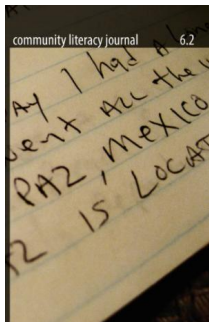 community literacy journal 6.2
AY I had A lon
vent All the w
PAZ, MEXICO
AZ IS LOCAT